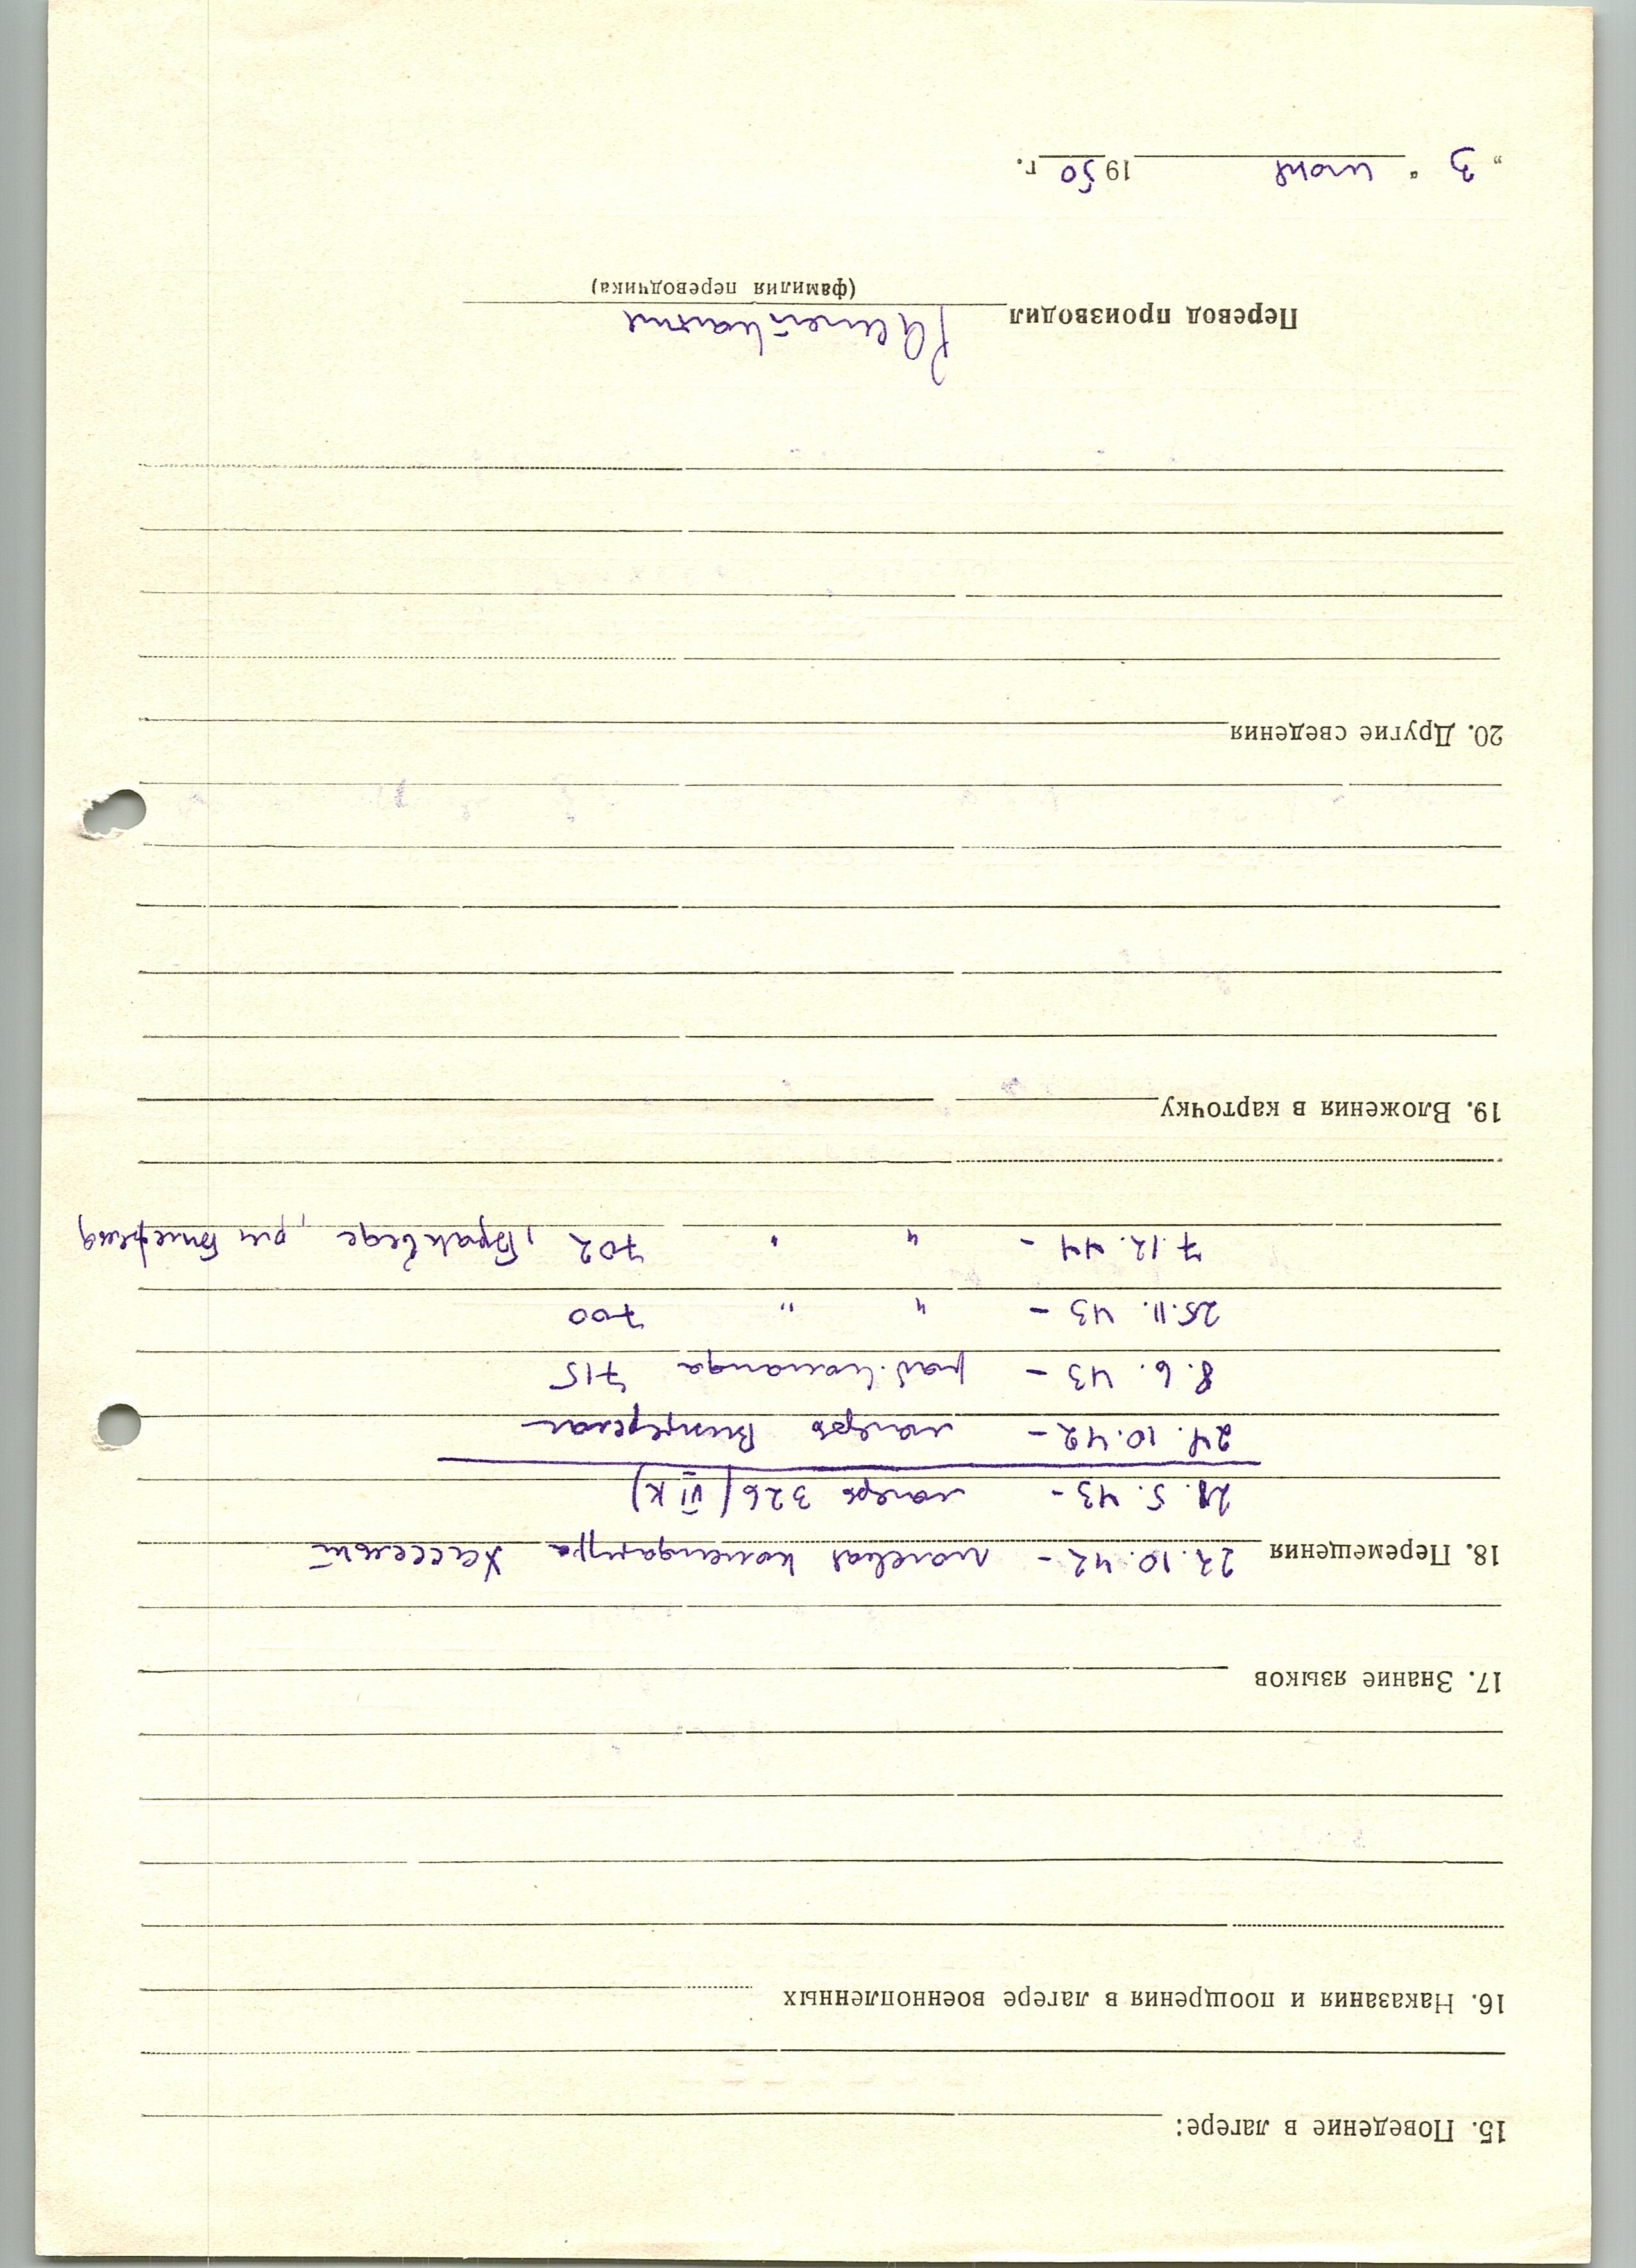 15. Поведение в лагере:
16. Наказания и поощрения в лагере военнопленных
17. Знание языков
18. Перемещения 22.10.42 – полевая комендатура
21.5.43 – лагерь 326 (VI К)
24.10.42 – лагерь
8.6.43 – раб. команда 715
25.11.43 – " " 700
7.12.44 – " " 702, Бракведе, р-н Билефельд
19. Вложения в карточку
20. Другие сведения
Перевод производил
(фамилия переводчика)
„ 3 “ июня 1950 г.